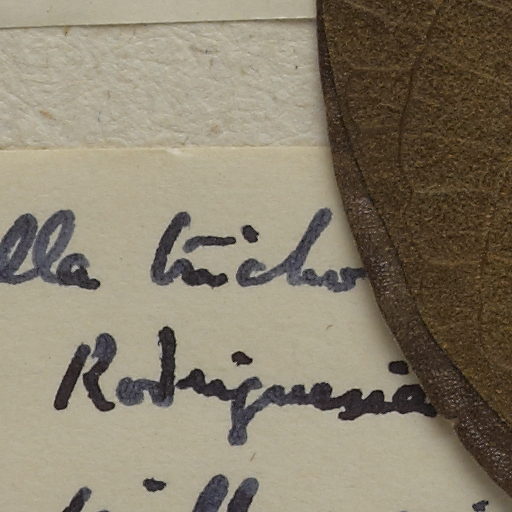 lla tricho
Rodriguesia